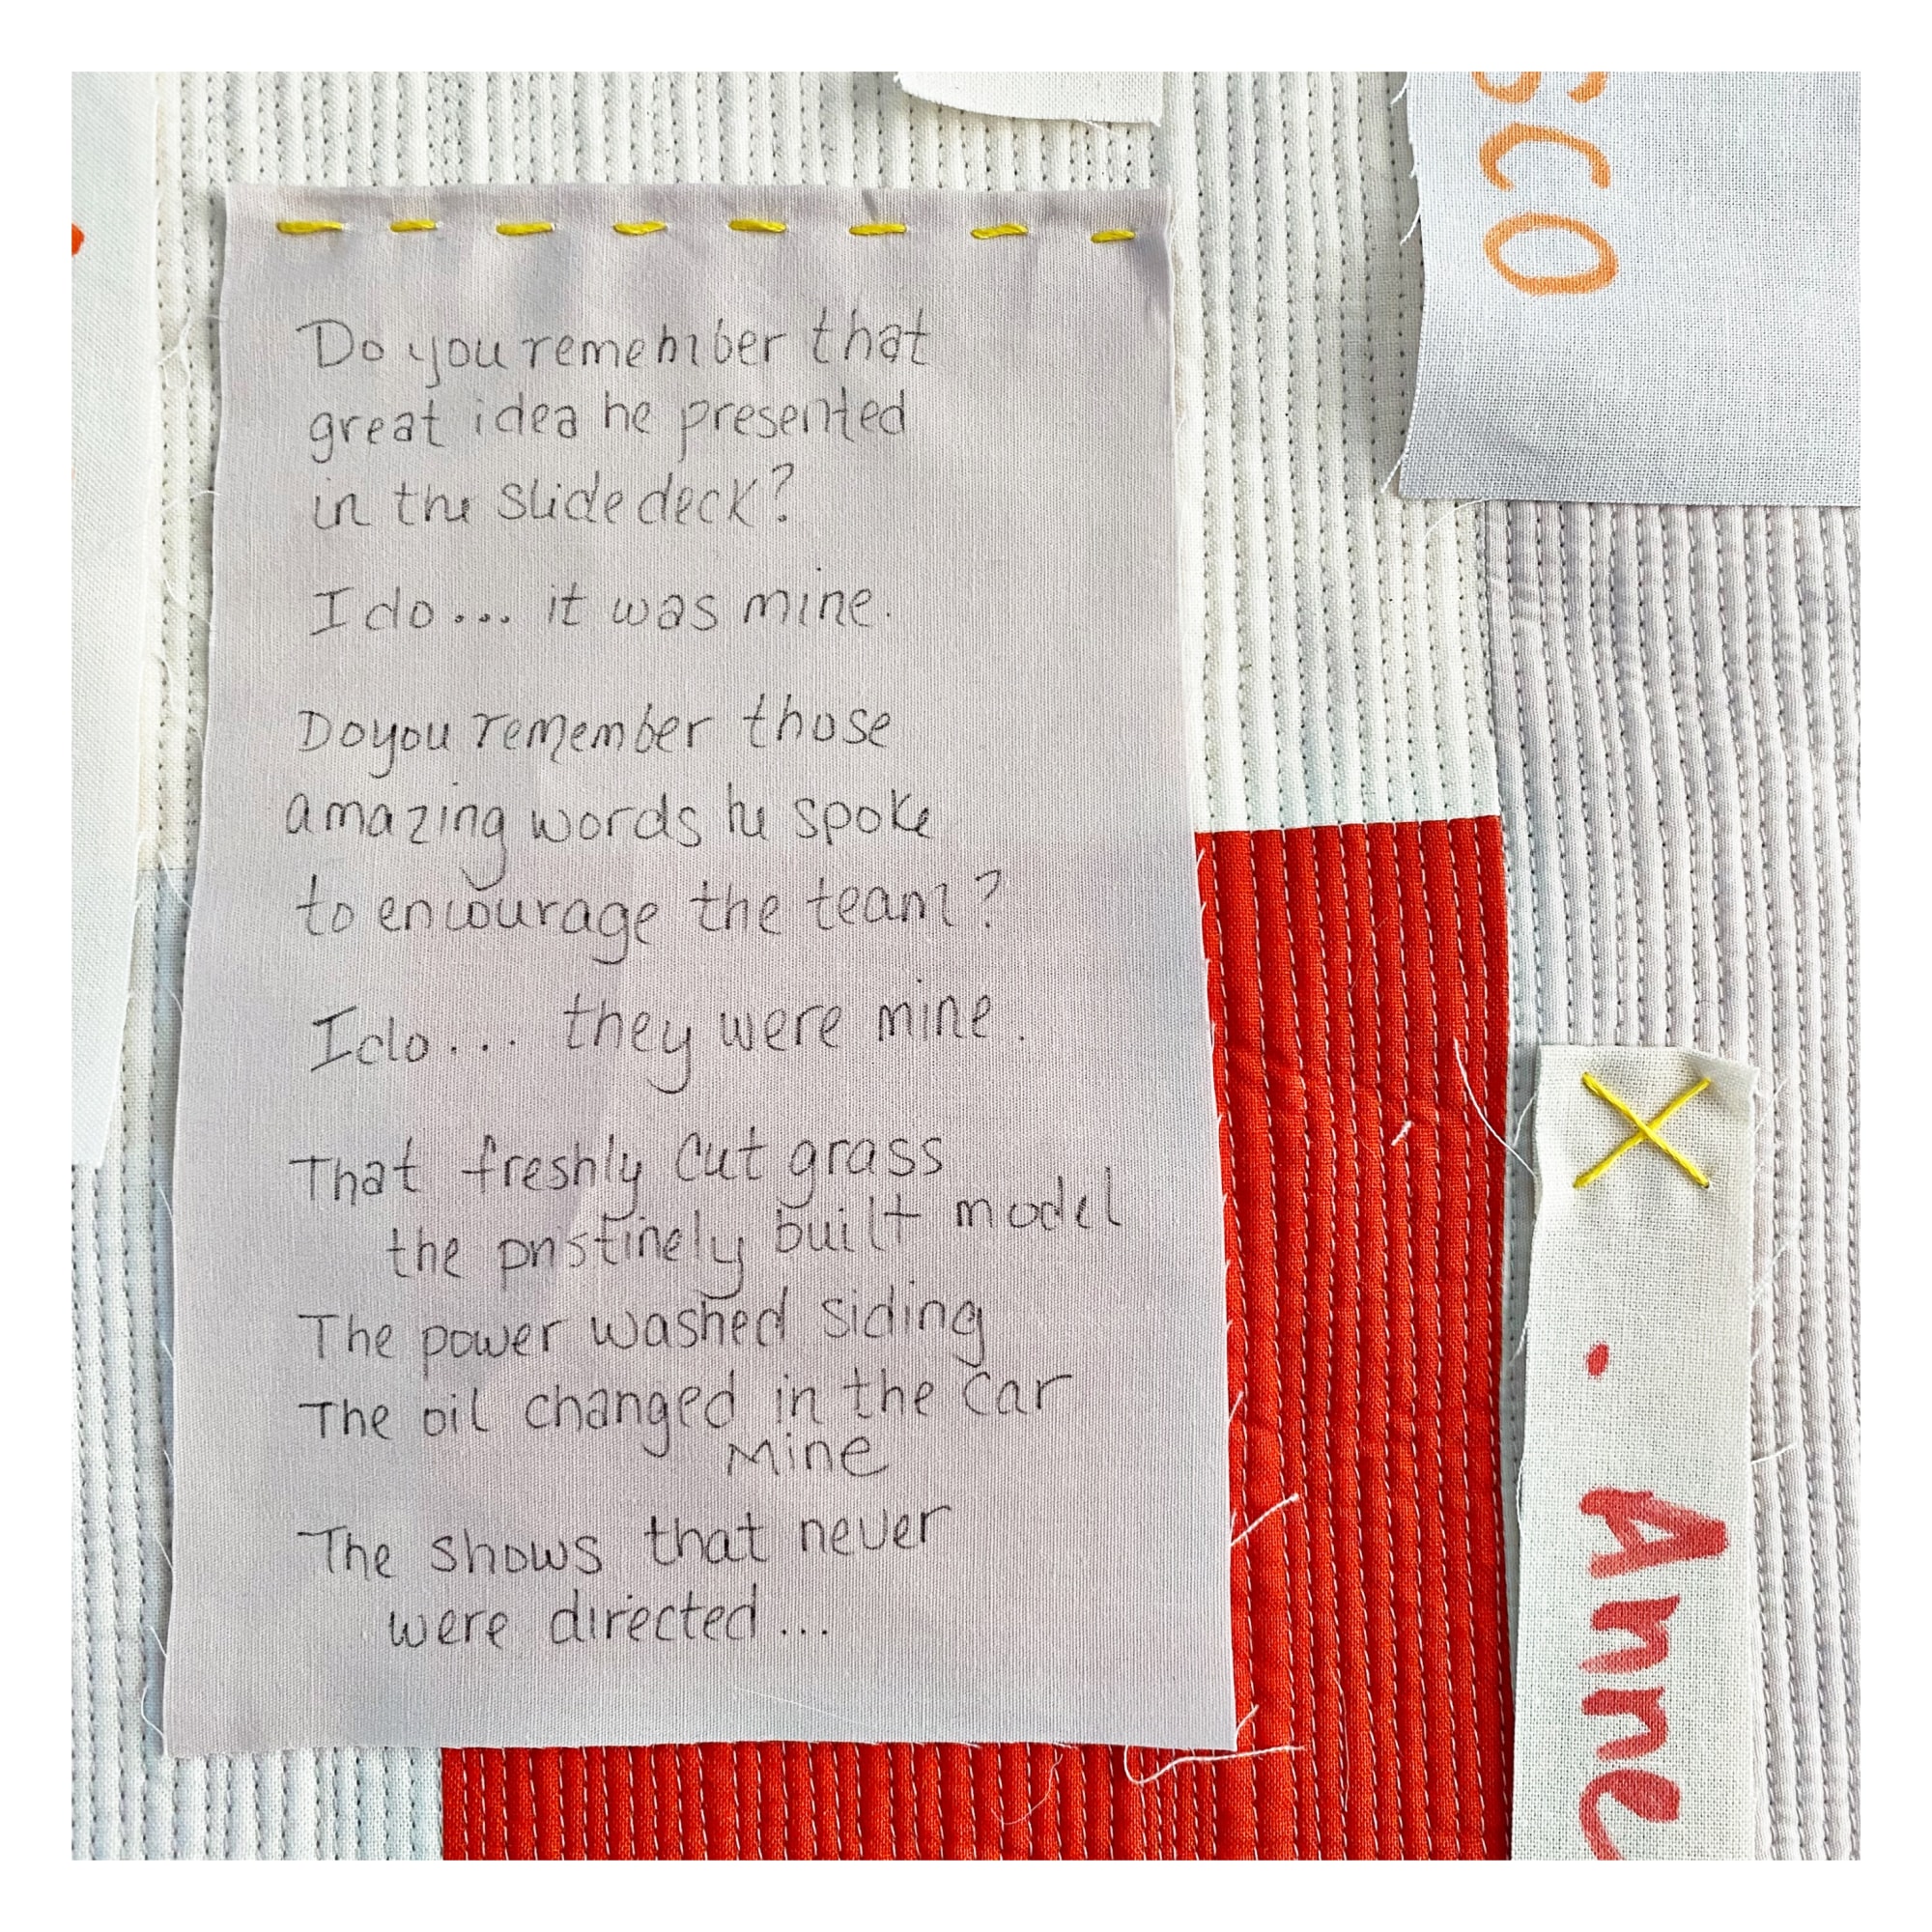 SCO
Do you remember that
great idea he presented
in the slide deck?
I do... it was mine.
Do you remember those
amazing words he spoke
to encourage the team?
I do... they were mine.
That freshly cut grass
the pristinely built model
The power washed siding
The oil changed in the car
Mine
The shows that never
were directed...
. Anne